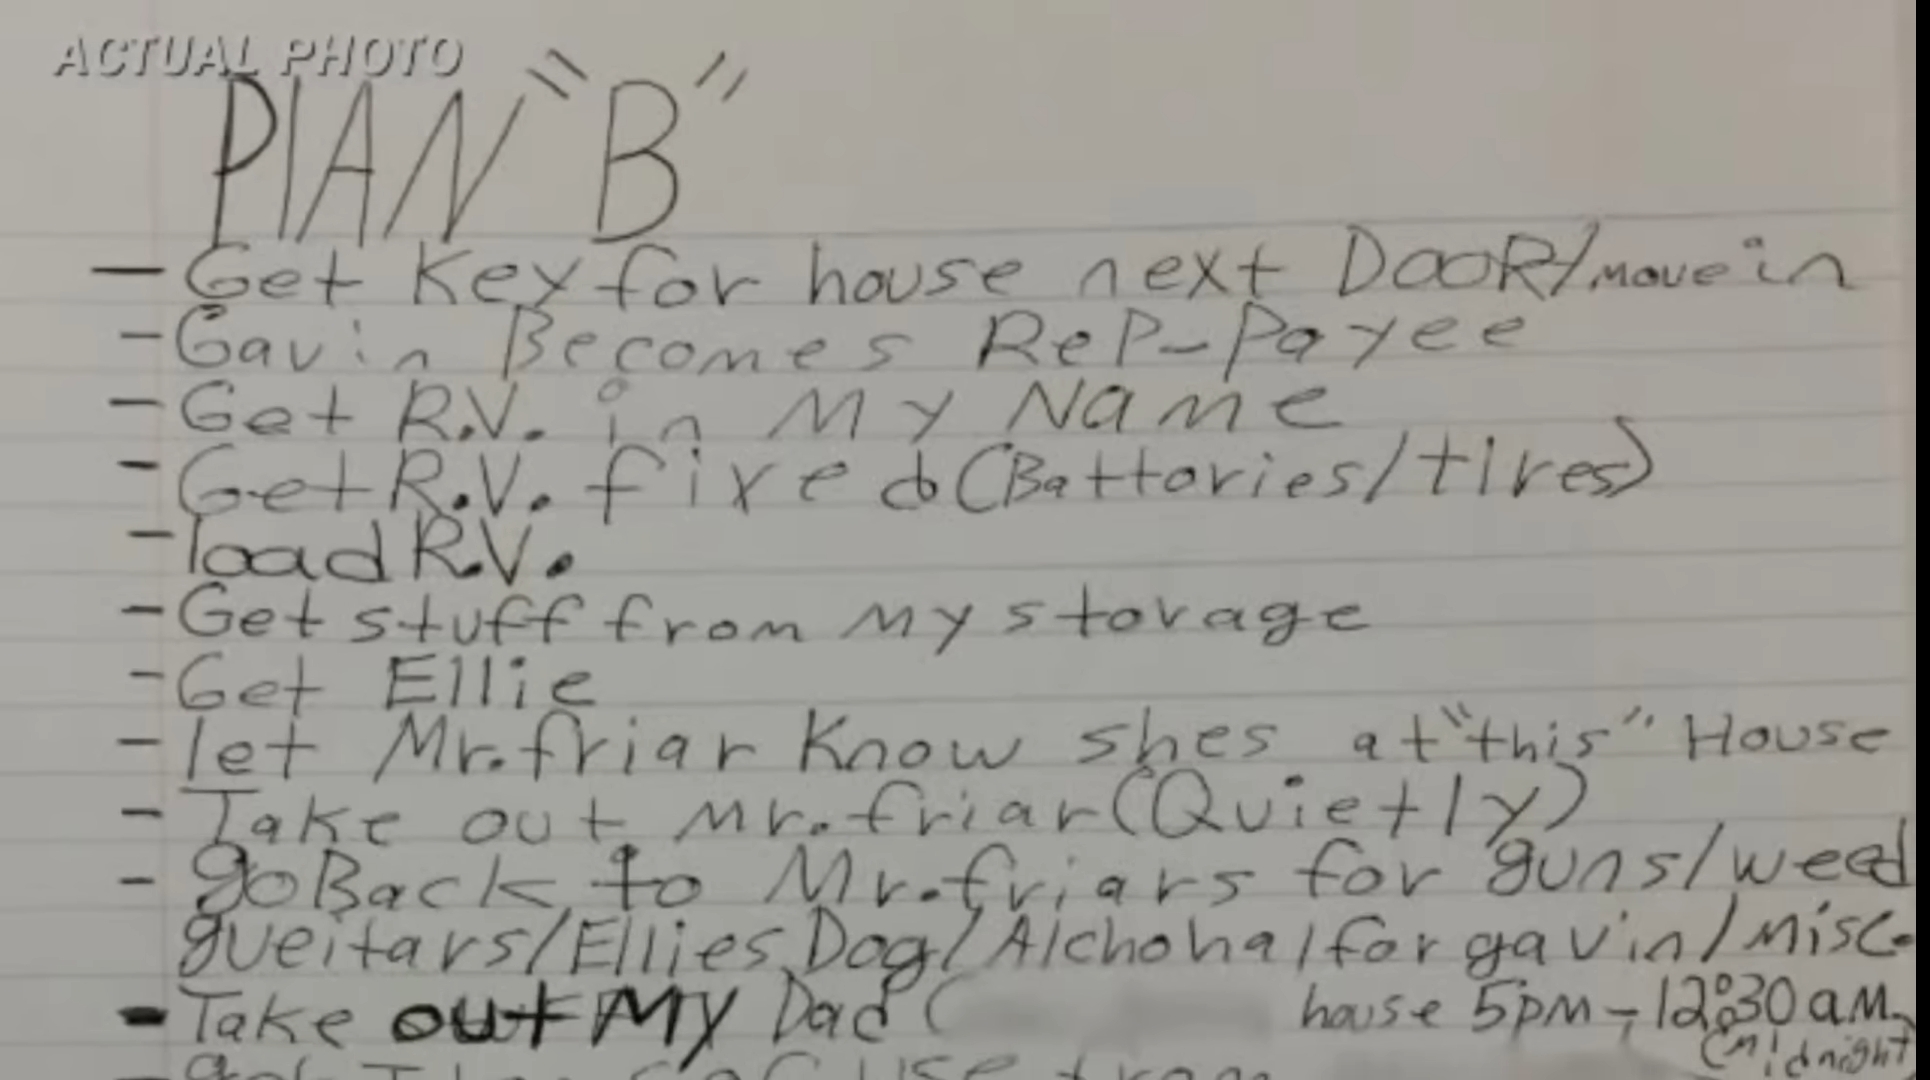 ACTUAL PHOTO
PlAN "B"
- Get Key for house next DooR/move in
- Gavin Becomes ReP-Payee
- Get R.V. in My Name
- Get R.V. fixed (Battories/tires)
- load R.V.
- Get stuff from My storage
- Get Ellie
- let Mr. friar Know shes at "this" House
- Take out Mr. friar (Quietly)
- go Back to Mr. friars for guns/weed
gueitars/Ellies Dog/Alchohal for gavin/Misc.
- Take out My Dad ( house 5pm - 12:30 a.m.
(Midnight
from